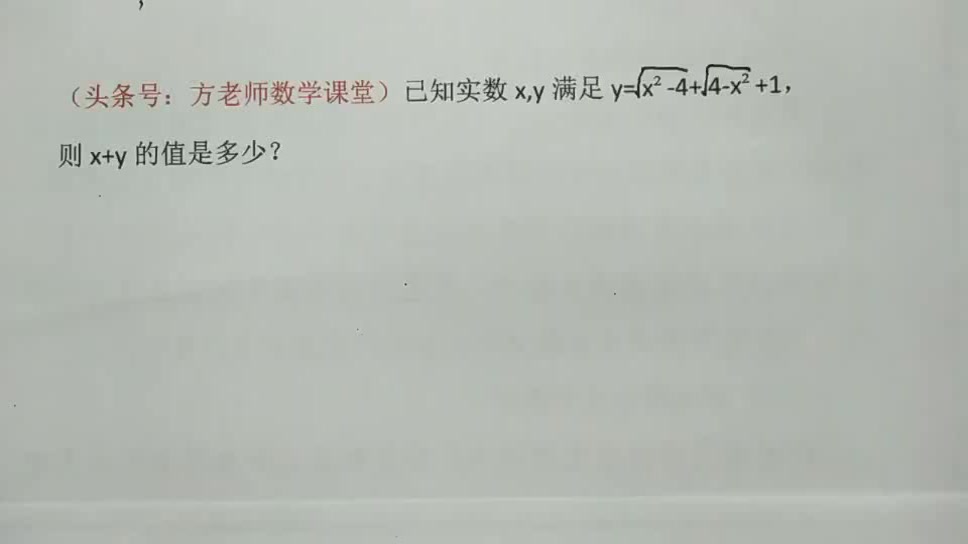 （头条号：方老师数学课堂）已知实数 x,y 满足 y=√x²-4+√4-x²+1，
则 x+y 的值是多少？